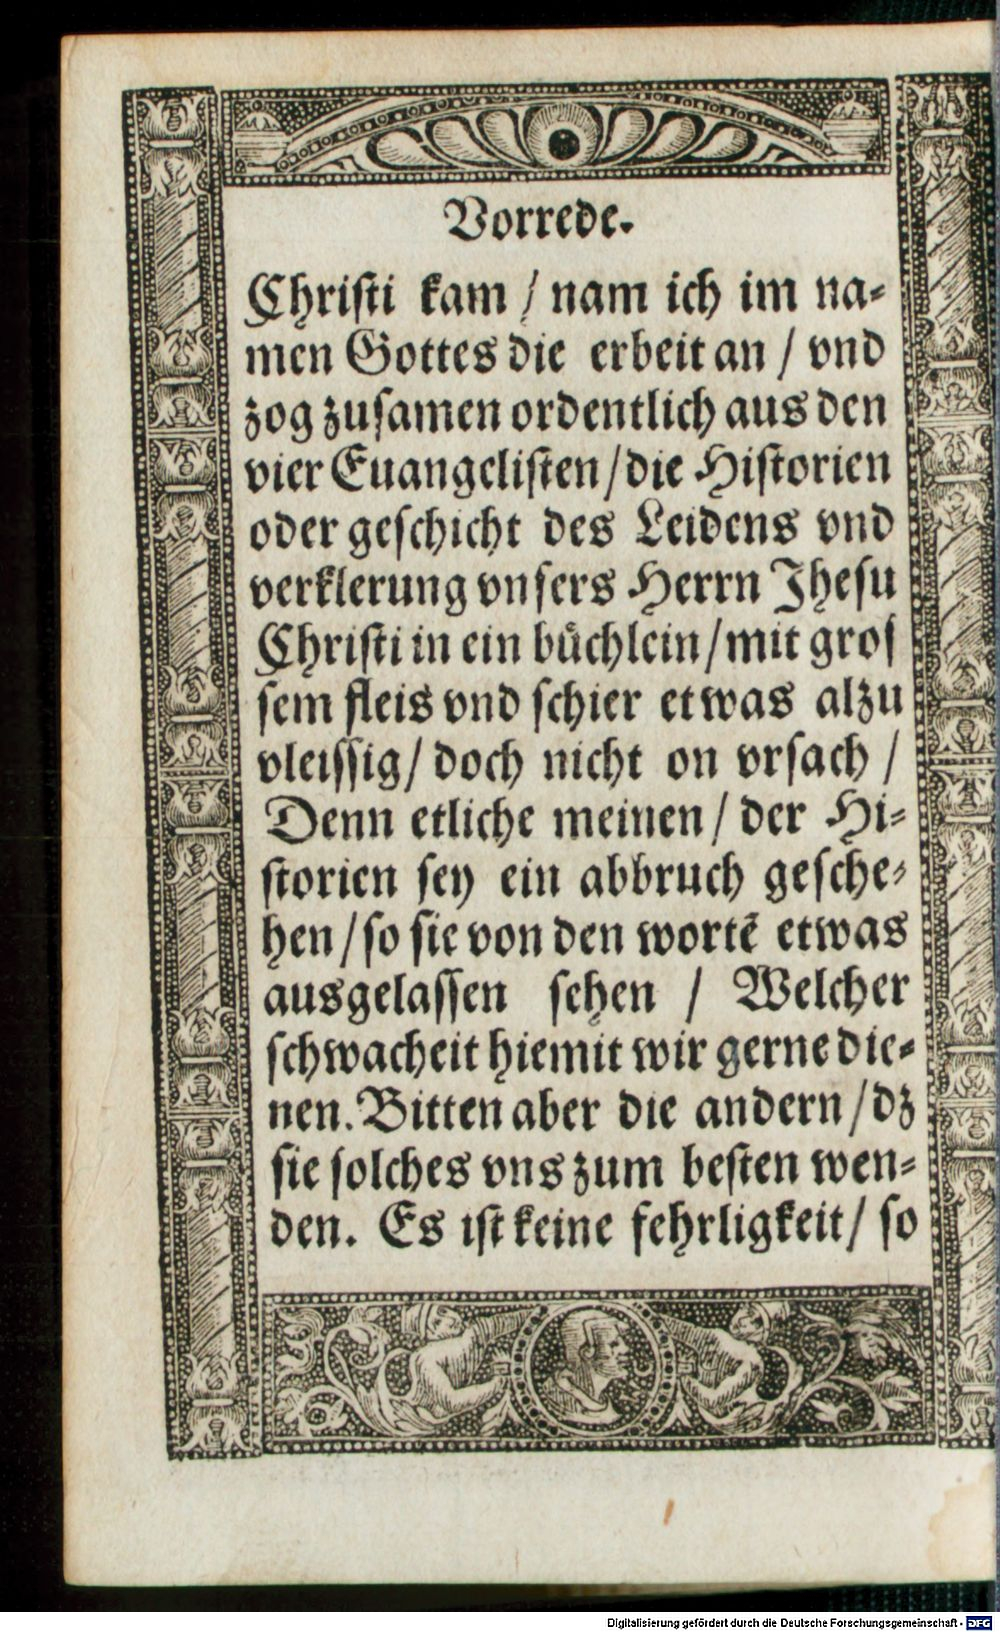 Vorrede.
Christi kam / nam ich im na-
men Gottes die erbeit an / vnd
zog zusamen ordentlich aus den
vier Euangelisten / die Historien
oder geschicht des Leidens vnd
verklerung vnsers Herrn Jhesu
Christi in ein büchlein / mit gros
sem fleis vnd schier etwas alzu
vleissig / doch nicht on vrsach /
Denn etliche meinen / der Hi-
storien sey ein abbruch gesche-
hen / so sie von den wortē etwas
ausgelassen sehen / Welcher
schwacheit hiemit wir gerne die-
nen. Bitten aber die andern / dz
sie solches vns zum besten wen-
den. Es ist keine fehrligkeit / so
Digitalisierung gefördert durch die Deutsche Forschungsgemeinschaft - DFG